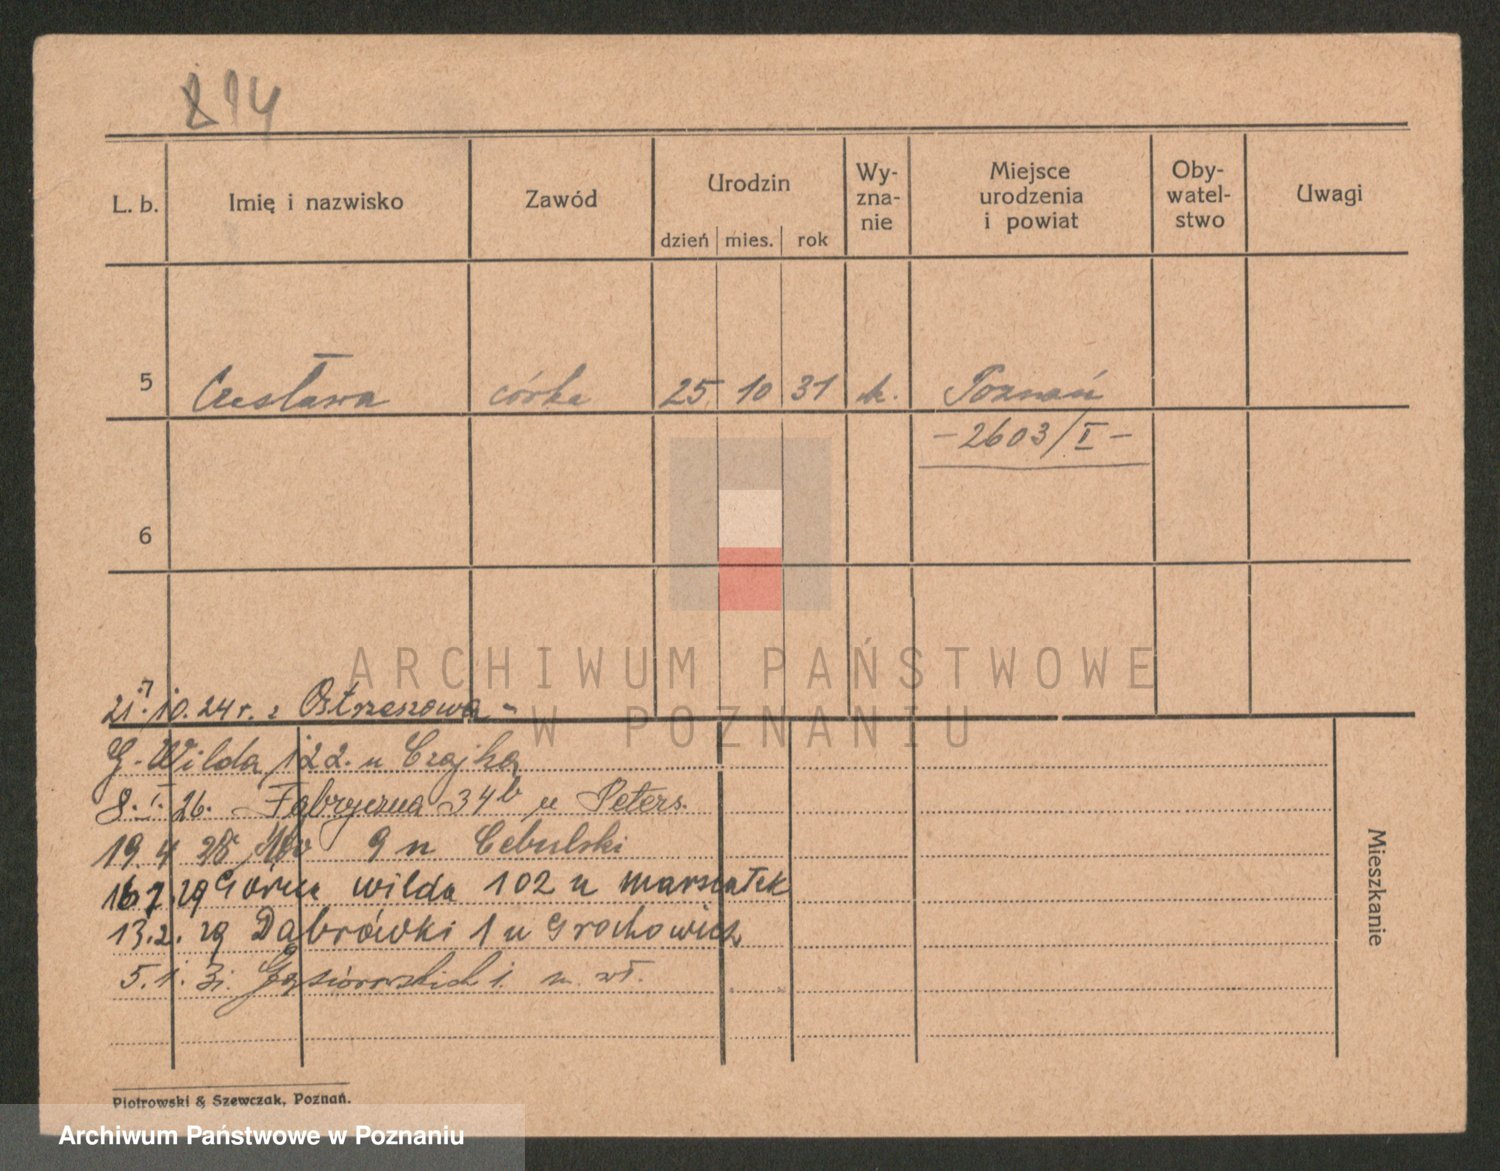 814
L. b. Imię i nazwisko Zawód Urodzin dzień mies. rok Wy-zna-nie Miejsce urodzenia i powiat Oby-watel-stwo Uwagi
5 Czesława córka 25 10 31 k. Poznań
-2603/I-
6
ARCHIWUM PAŃSTWOWE
W POZNANIU
10.24 r. z Ostrzeszowa -
G. Wilda 122 u Czajka
8. I. 26. Fabryczna 34b u Peters.
19 4 28 9 u Cebulski
16 7. 29 Górna wilda 102 u marszałek
13.2. 29 Dąbrówki 1 u Grochowicz
5. 1. 31. Gąsiorowskich 1. m. wł.
Mieszkanie
Piotrowski & Szewczak, Poznań.
Archiwum Państwowe w Poznaniu